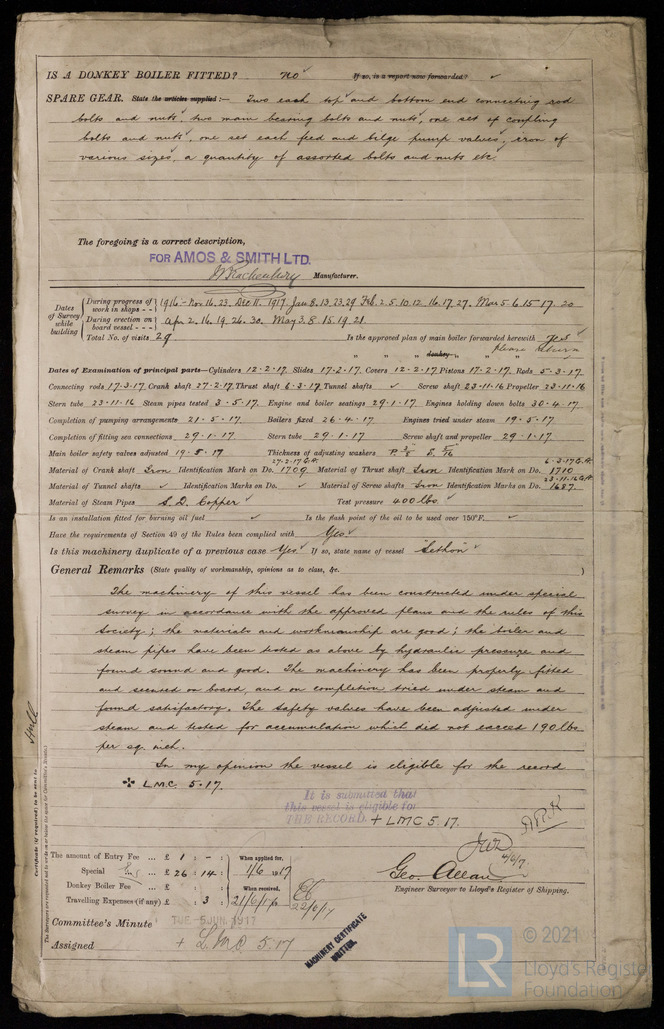 IS A DONKEY BOILER FITTED? no ✓ If so, is a report now forwarded? ✓
SPARE GEAR. State the articles supplied:— Two each top and bottom end connecting rod
bolts and nuts, two main bearing bolts and nuts, one set of coupling
bolts and nuts, one set each feed and bilge pump valves, iron of
various sizes, a quantity of assorted bolts and nuts etc.
The foregoing is a correct description,
FOR AMOS & SMITH LTD.
Manufacturer.
Dates of Survey while building
During progress of work in shops - - 1916 - Nov. 16. 23. Dec 11. 1917 Jan 8. 13. 23. 29 Feb. 2. 5. 10. 12. 16. 17. 27. Mar 5. 6. 15. 17. 20
During erection on board vessel - - - Apr 2. 16. 19. 26. 30. May 3. 8. 15. 19. 21.
Total No. of visits 29 Is the approved plan of main boiler forwarded herewith Yes ✓
" " " donkey " " " please return
Dates of Examination of principal parts—Cylinders 12.2.17. Slides 17.2.17. Covers 12.2.17 Pistons 17.2.17. Rods 5.3.17
Connecting rods 17.3.17. Crank shaft 27.2.17. Thrust shaft 6.3.17. Tunnel shafts ✓ Screw shaft 23.11.16 Propeller 23.11.16
Stern tube 23.11.16 Steam pipes tested 3.5.17. Engine and boiler seatings 29.1.17. Engines holding down bolts 30.4.17.
Completion of pumping arrangements 21.5.17. Boilers fixed 26.4.17. Engines tried under steam 19.5.17
Completion of fitting sea connections 29.1.17 Stern tube 29.1.17 Screw shaft and propeller 29.1.17
Main boiler safety valves adjusted 19.5.17 Thickness of adjusting washers P. 3/8 S. 5/16
Material of Crank shaft Iron Identification Mark on Do. 27.2.17 G.A. 1709 Material of Thrust shaft Iron Identification Mark on Do. 6.3.17 G.A. 1710
Material of Tunnel shafts ✓ Identification Marks on Do. ✓ Material of Screw shafts Iron Identification Marks on Do. 23.11.16 G.A. 1687.
Material of Steam Pipes S. D. Copper ✓ Test pressure 400 lbs. ✓
Is an installation fitted for burning oil fuel ✓ Is the flash point of the oil to be used over 150°F. ✓
Have the requirements of Section 49 of the Rules been complied with Yes ✓
Is this machinery duplicate of a previous case Yes ✓ If so, state name of vessel "Sethon" ✓
General Remarks (State quality of workmanship, opinions as to class, &c. )
The machinery of this vessel has been constructed under special
survey in accordance with the approved plans and the rules of this
Society; the materials and workmanship are good; the boiler and
steam pipes have been tested as above by hydraulic pressure and
found sound and good. The machinery has been properly fitted
and secured on board, and on completion tried under steam and
found satisfactory. The safety valves have been adjusted under
steam and tested for accumulation which did not exceed 190 lbs
per sq. inch.
In my opinion the vessel is eligible for the record
✤ L.M.C. 5.17.
It is submitted that
this vessel is eligible for
THE RECORD. + LMC 5.17.
4/6/17.
The amount of Entry Fee ... £ 1 : - : When applied for,
Special ... £ 26 : 14 : 1/6 1917
Donkey Boiler Fee ... £ When received,
Travelling Expenses (if any) £ : 3 : 21/6/17 22/6/17
Geo. Allan
Engineer Surveyor to Lloyd's Register of Shipping.
Committee's Minute TUE. 5 JUN. 1917
Assigned + L.M.C. 5.17
MACHINERY CERTIFICATE
WRITTEN.
Hull
Certificate (if required) to be sent to
LR © 2021
Lloyd's Register
Foundation